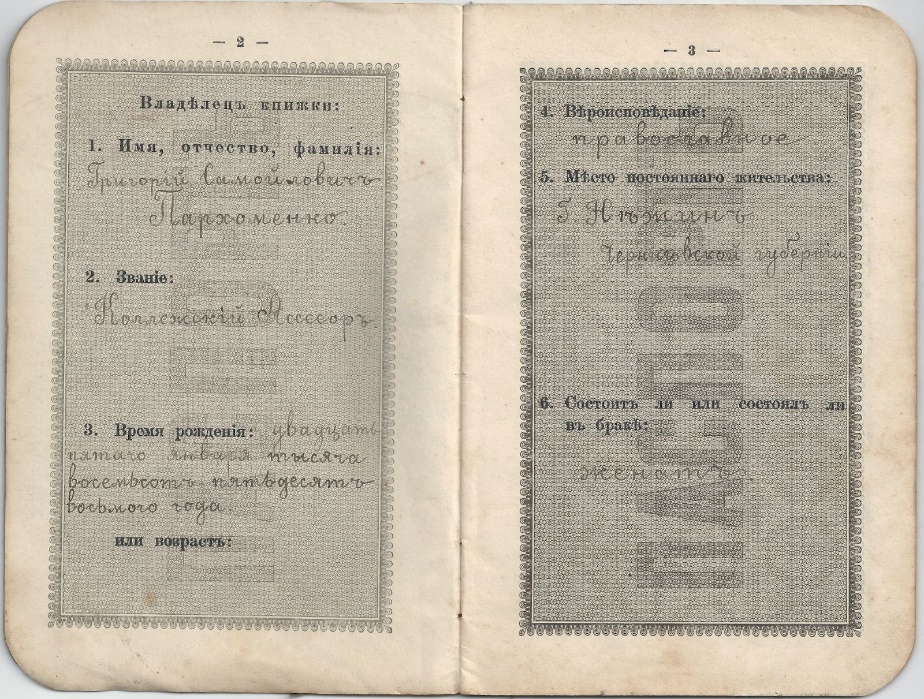 — 2 —
Владѣлецъ книжки:
1. Имя, отчество, фамилія:
Григорій Самойловичъ
Пархоменко.
2. Званіе:
Коллежскій Ассессоръ.
3. Время рожденія: двадцать
пятаго января тысяча
восемьсотъ пятьдесятъ
восьмого года.
или возрастъ:
— 3 —
4. Вѣроисповѣданіе:
православное
5. Мѣсто постояннаго жительства:
Г. Нѣжинъ
Черниговской губерніи
6. Состоитъ ли или состоялъ ли
въ бракѣ:
женатъ.
ПАСПОРТ